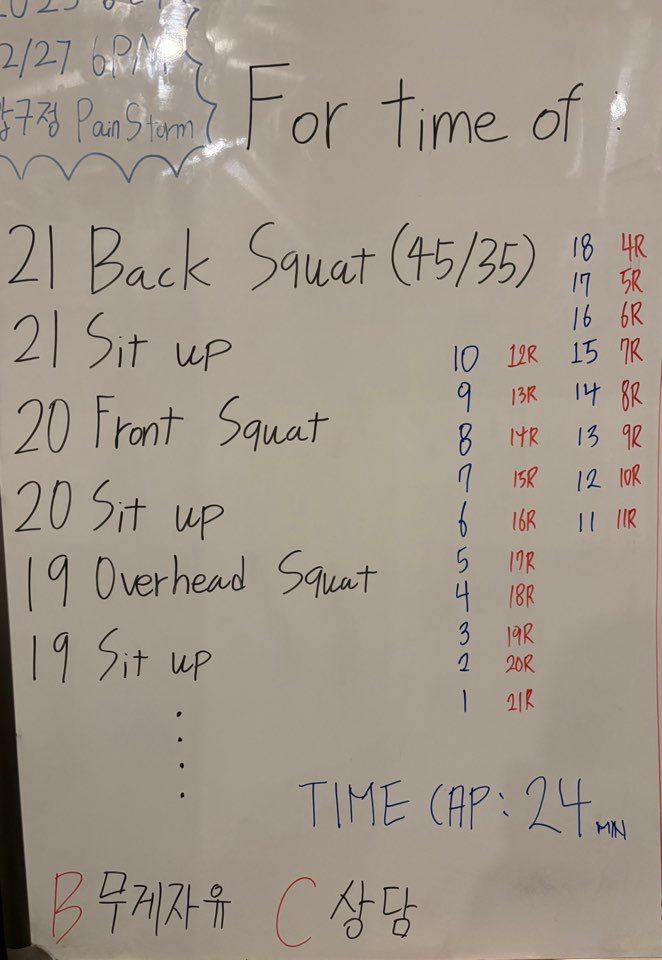 2/27 6PM
압구정 Pain Storm
For time of :
21 Back Squat (45/35)
21 Sit up
20 Front Squat
20 Sit up
19 Overhead Squat
19 Sit up
18 4R
17 5R
16 6R
15 7R
14 8R
13 9R
12 10R
11 11R
10 12R
9 13R
8 14R
7 15R
6 16R
5 17R
4 18R
3 19R
2 20R
1 21R
TIME CAP: 24 MIN
B 무게자유 C 상담